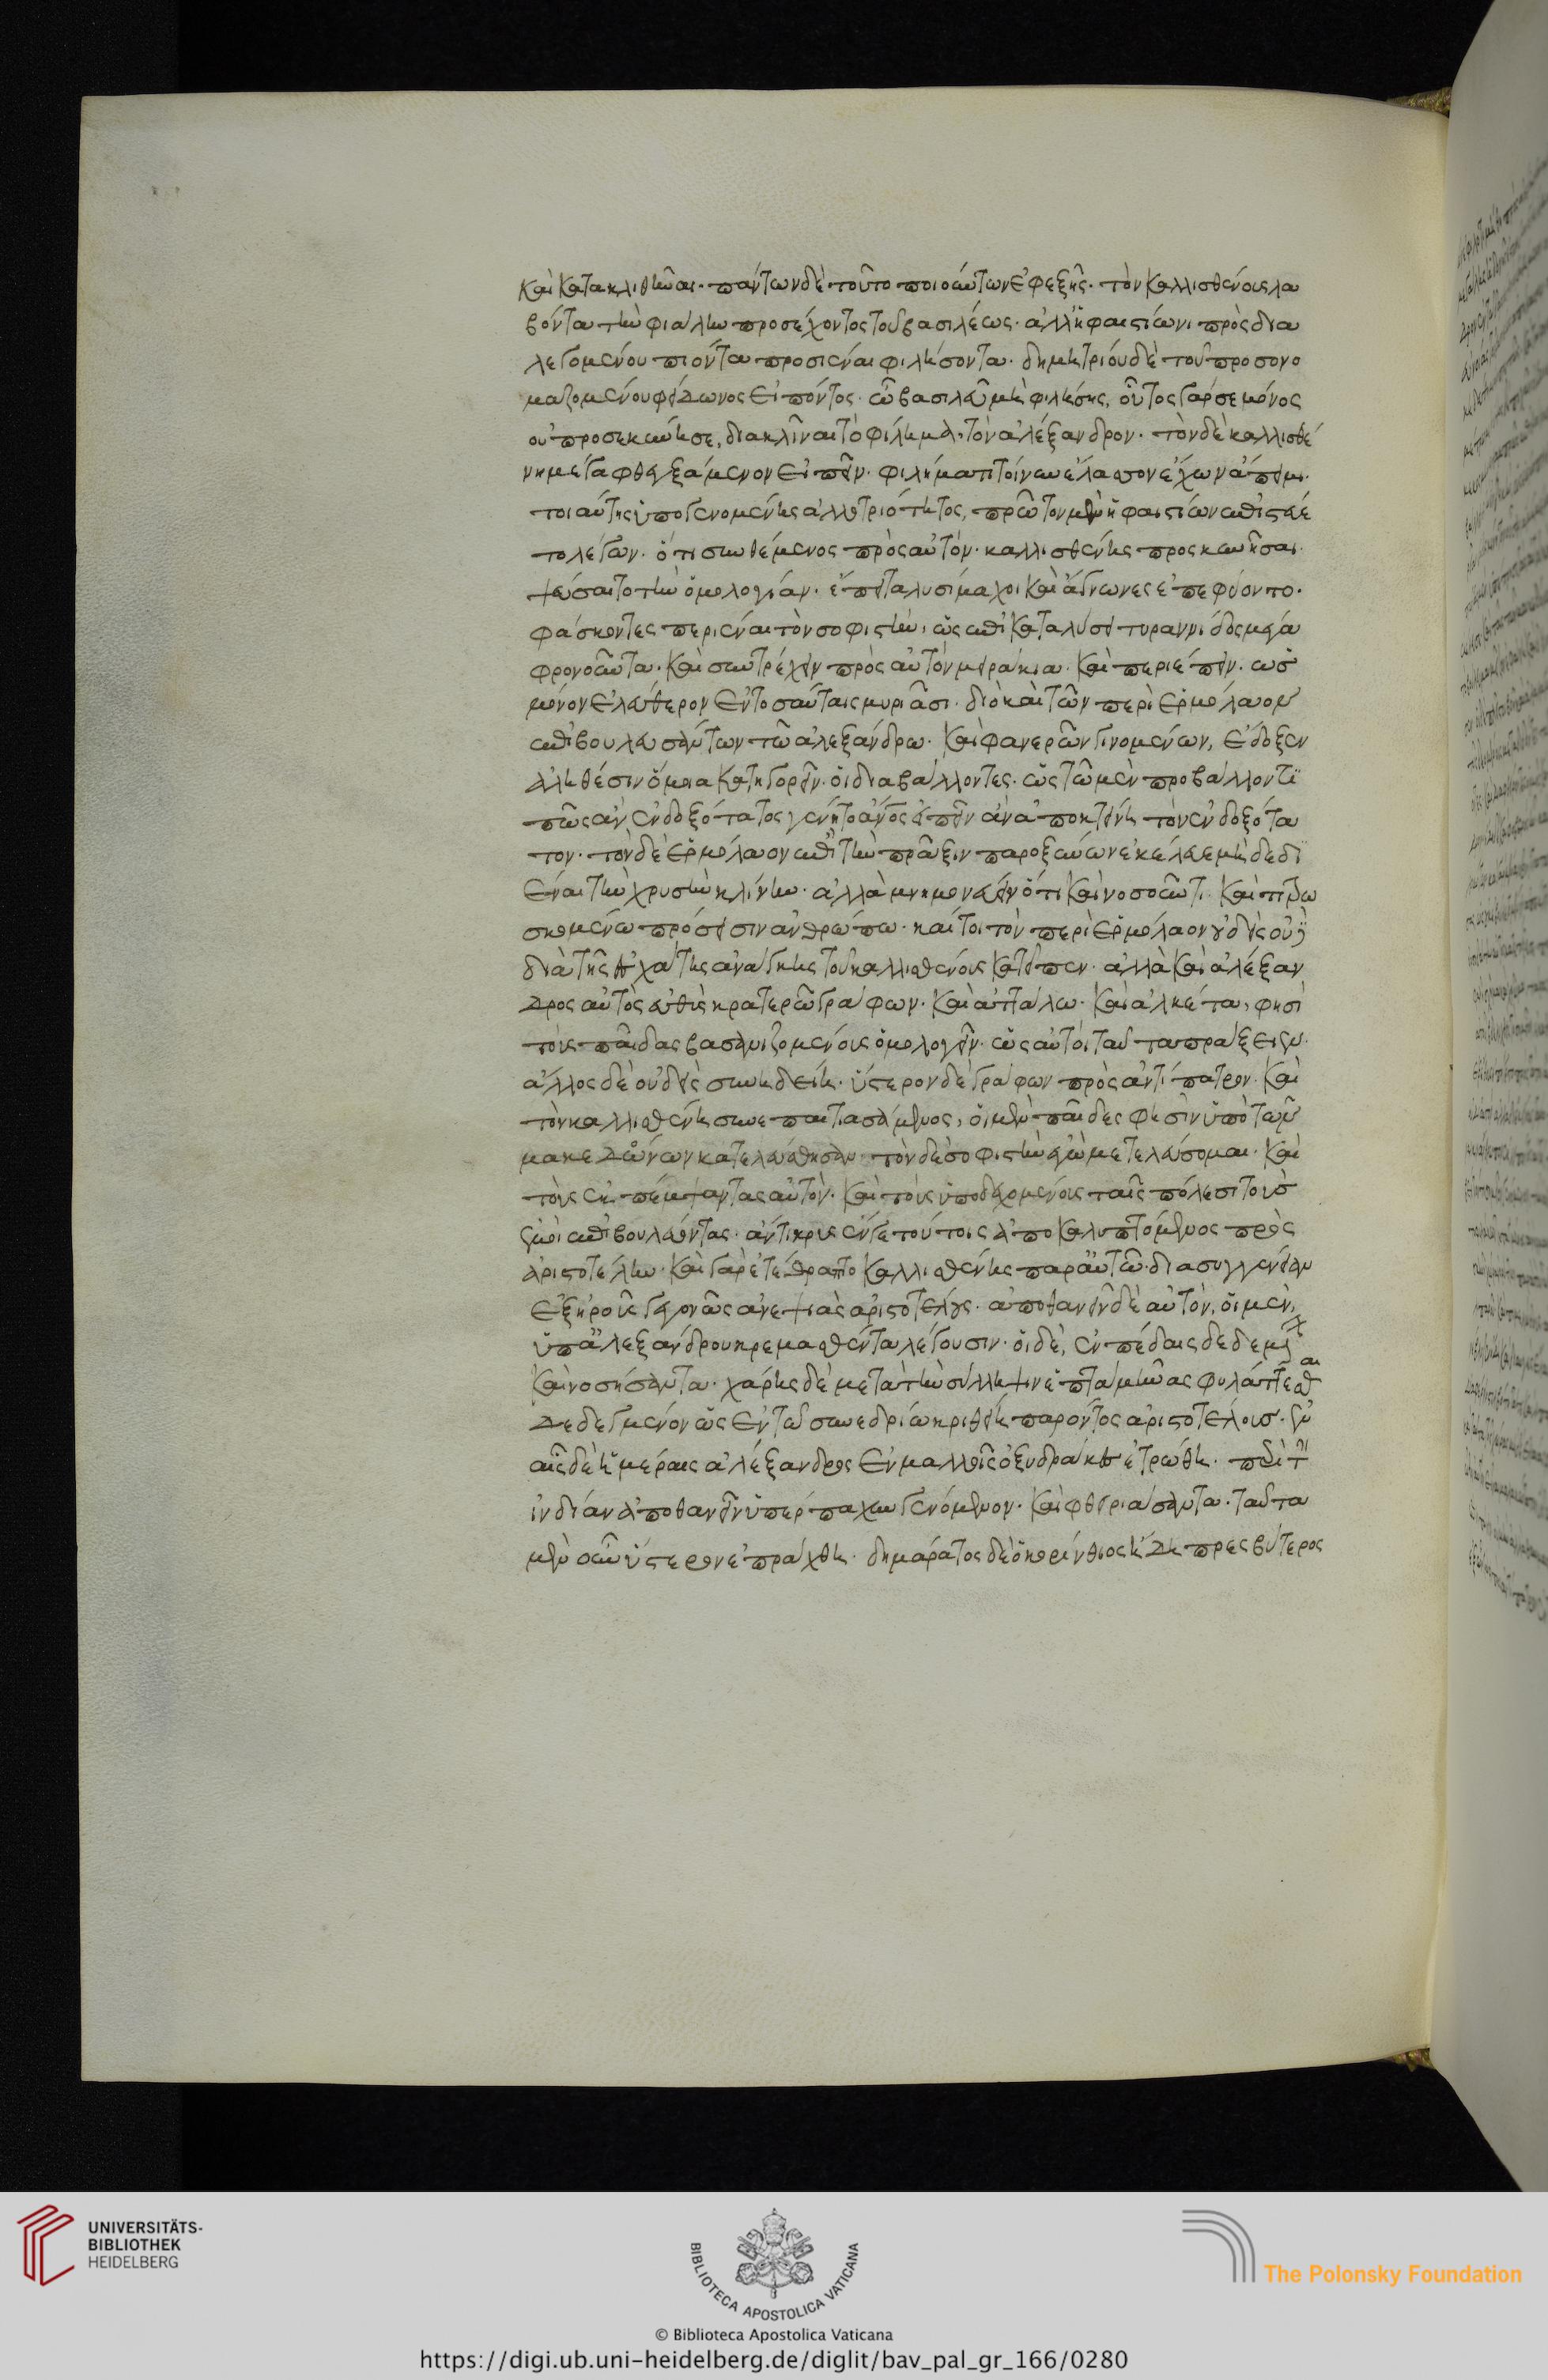 καὶ κατακλιθῆναι. πάντων δὲ τοῦτο ποιούντων ἐφεξῆς. τὸν καλλισθένους λα
βόντα τὴν φιάλην προσέχοντος τοῦ βασιλέως. ἀλλ' ἡφαιστίωνι πρὸς δια
λεγομένου πιόντα προσιέναι φιλήσοντα. δημητρίου δὲ τοῦ προσονο
μαζομένου φείδωνος εἰπόντος. ὦ βασιλεῦ μὴ φιλήσης, οὗτος γάρ σε μόνος
οὐ προσεκύνησε, διακλῖναι τὸ φίλημα τὸν ἀλέξανδρον. τὸν δὲ καλλισθέ
νη μέγα φθεγξάμενον εἰπεῖν. φιλήματι τοίνυν ἔλασσον ἔχων ἄπειμι.
τοιαύτης ὑπογενομένης ἀλλοτριότητος, πρῶτον μὲν ἡφαιστίων ἐπιστεύε
το λέγων. ὅτι συνθέμενος πρὸς αὐτὸν καλλισθένης προσκυνῆσαι.
ψεύσαιτο τὴν ὁμολογίαν. ἔπειτα λυσίμαχοι καὶ ἅγνωνες ἐπεφύοντο.
φάσκοντες περιέναι τὸν σοφιστὴν, ὡς ἐπὶ καταλύσει τυραννίδος μέγα
φρονοῦντα. καὶ συντρέχειν πρὸς αὐτὸν μειράκια. καὶ περιέπειν. ὡς
μόνον ἐλεύθερον ἐν τοσαύταις μυριᾶσι. διὸ καὶ τῶν περὶ ἑρμόλαον
ἐπιβουλευσάντων τῶ ἀλεξάνδρω. καὶ φανερῶν γινομένων, ἔδοξεν
ἀληθέσιν ὅμοια κατηγορεῖν. οἱ διαβάλλοντες. ὡς τῶ μὲν προβάλλοντι
πῶς ἂν ἐνδοξότατος γένητο ἄνος εἶπεν ἂν ἀποκτείνη τὸν ἐνδοξότα
τον. τὸν δὲ ἑρμόλαον ἐπὶ τὴν πρᾶξιν παροξύνων ἐκέλευε μὴ δεδι
έναι τὴν χρυσῆν κλίνην. ἀλλὰ μνημονεύειν ὅτι καὶ νοσοῦντι καὶ τιτρω
σκομένω πρόσεισιν ἀνθρώπω. καίτοι τὸν περὶ ἑρμόλαον οὐδεὶς οὐδὲ
διὰ τῆς ἐσχάτης ἀνάγκης τοῦ καλλισθένους κατεῖπεν. ἀλλὰ καὶ ἀλέξαν
δρος αὐτὸς εὐθὺς κρατερῶ γράφων. καὶ ἀττάλω. καὶ ἀλκέτα, φησὶ
τοὺς παῖδας βασανιζομένους ὁμολογεῖν. ὡς αὐτοὶ ταῦτα πράξειαν.
ἄλλος δὲ οὐδεὶς συνηδείη. ὕστερον δὲ γράφων πρὸς ἀντίπατρον. καὶ
τὸν καλλισθένη συνεπαιτιασάμενος, οἱ μὲν παῖδές φησιν ὑπὸ τῶν
μακεδόνων κατελεύσθησαν. τὸν δὲ σοφιστὴν ἐγὼ μετελεύσομαι. καὶ
τοὺς ἐκπέμψαντας αὐτὸν. καὶ τοὺς ὑποδεχομένους ταῖς πόλεσι τοὺς
ἐμοὶ ἐπιβουλεύοντας. ἄντικρυς ἔν γε τούτοις ἀποκαλυπτόμενος πρὸς
ἀριστοτέλην. καὶ γὰρ ἐτέθραπτο καλλισθένης παρ' αὐτῶ διὰ συγγένειαν
ἐξ ἡροῦς γεγονὼς ἀνεψιᾶς ἀριστοτέλους. ἀποθανεῖν δὲ αὐτὸν, οἱ μὲν,
ὑπ' ἀλεξάνδρου κρεμασθέντα λέγουσιν. οἱ δὲ, ἐν πέδαις δεδεμένον
καὶ νοσήσαντα. χάρης δὲ μετὰ τὴν σύλληψιν ἑπτὰ μῆνας φυλάττεσθαι
δεδεγμένον ὡς ἐν τῶ συνεδρίω κριθείη παρόντος ἀριστοτέλους. ἐν
αἷς δὲ ἡμέραις ἀλέξανδρος ἐν μαλλοῖς ὀξυδράκαις ἐτρώθη. περὶ τὴν
ἰνδίαν ἀποθανεῖν ὑπέρπαχυν γενόμενον. καὶ φθειριάσαντα. ταῦτα
μὲν οὖν ὕστερον ἐπράχθη. δημάρατος δὲ ὁ κορίνθιος ἤδη πρεσβύτερος
UNIVERSITÄTS-
BIBLIOTHEK
HEIDELBERG
BIBLIOTECA APOSTOLICA VATICANA
The Polonsky Foundation
© Biblioteca Apostolica Vaticana
https://digi.ub.uni-heidelberg.de/diglit/bav_pal_gr_166/0280